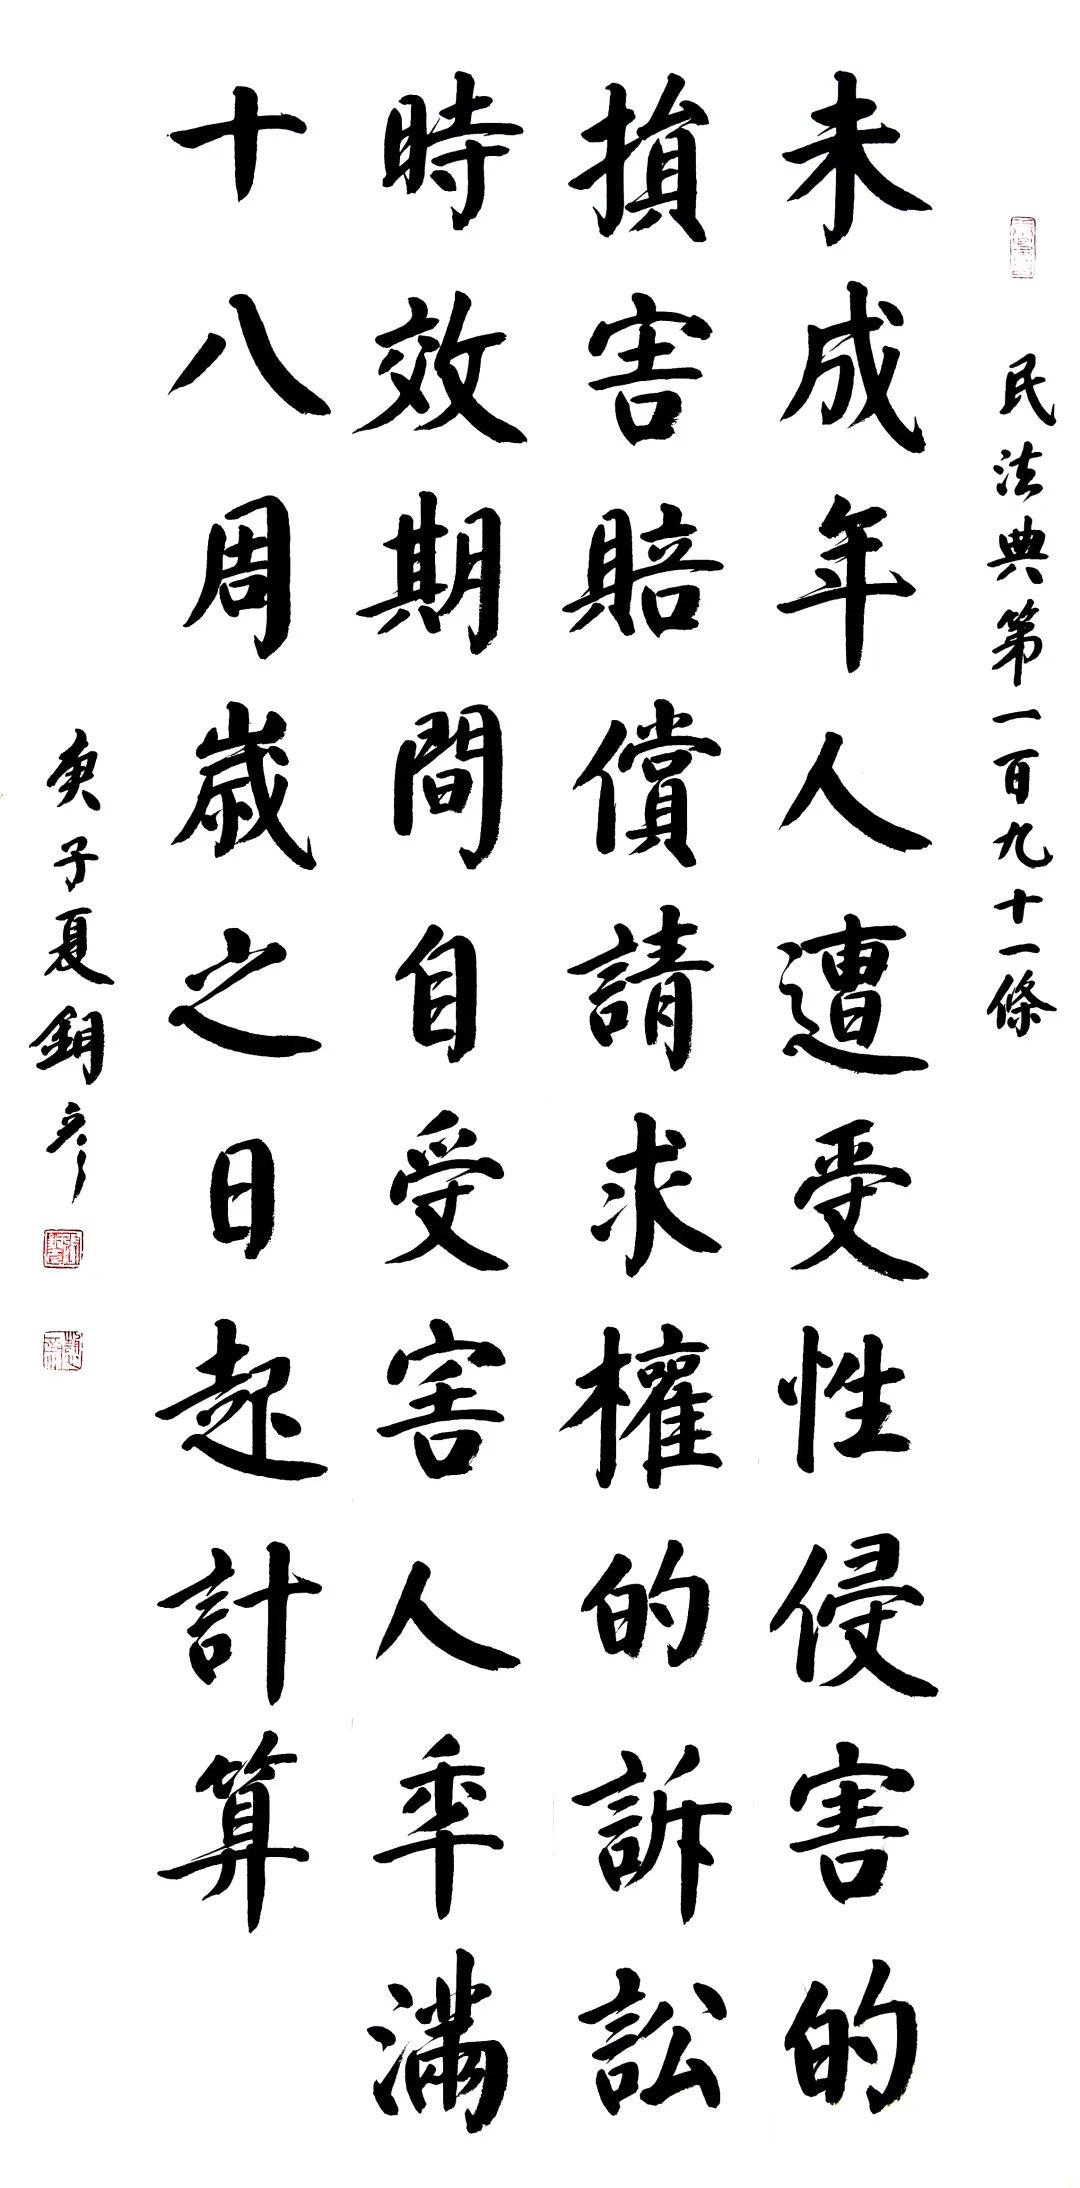 民法典第一百九十一條
未成年人遭受性侵害的
損害賠償請求權的訴訟
時效期間自受害人年滿
十八周歲之日起計算
庚子夏鈅彦